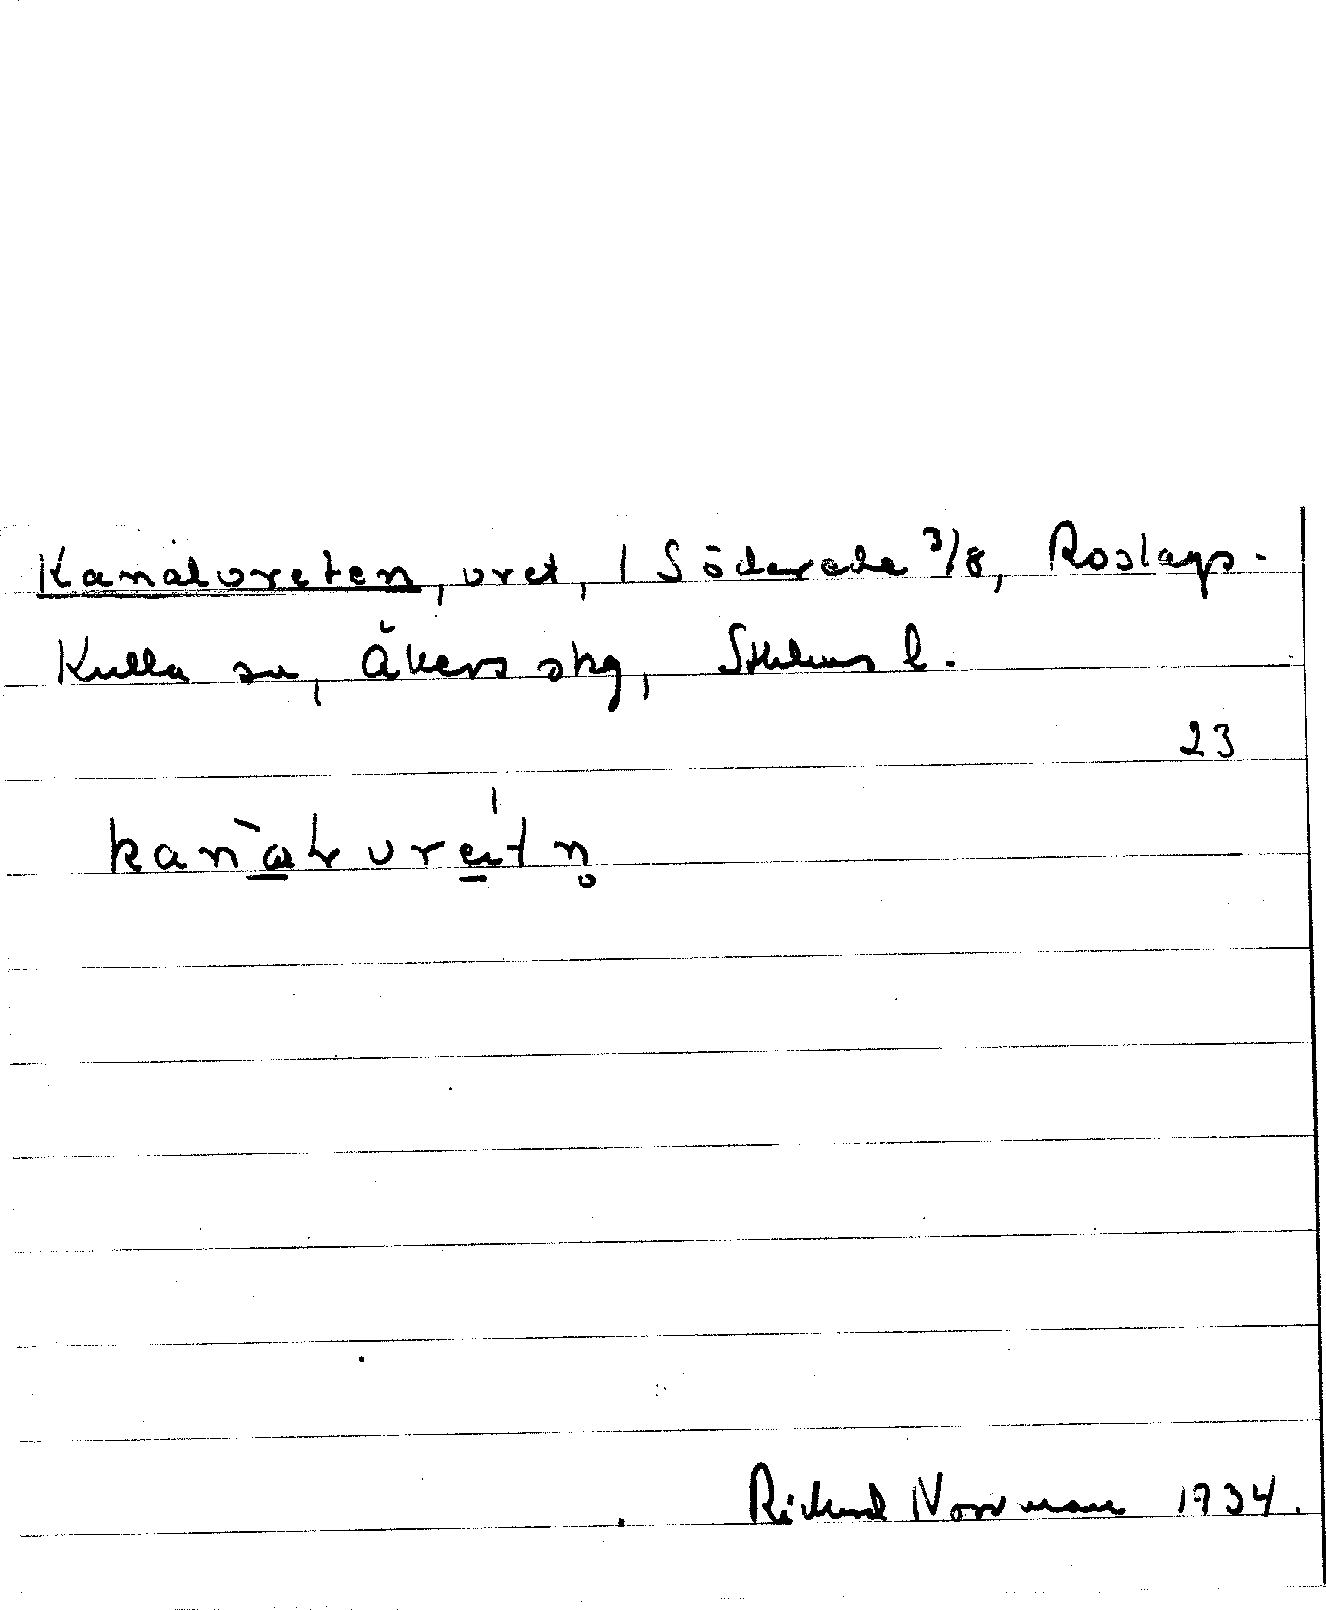 Kanaloreten, oret, 1 Söderede 3/8, Roslags-
Kulla sn, Åkers skg, Sthlms l.
23
Rickard Norrman 1934.